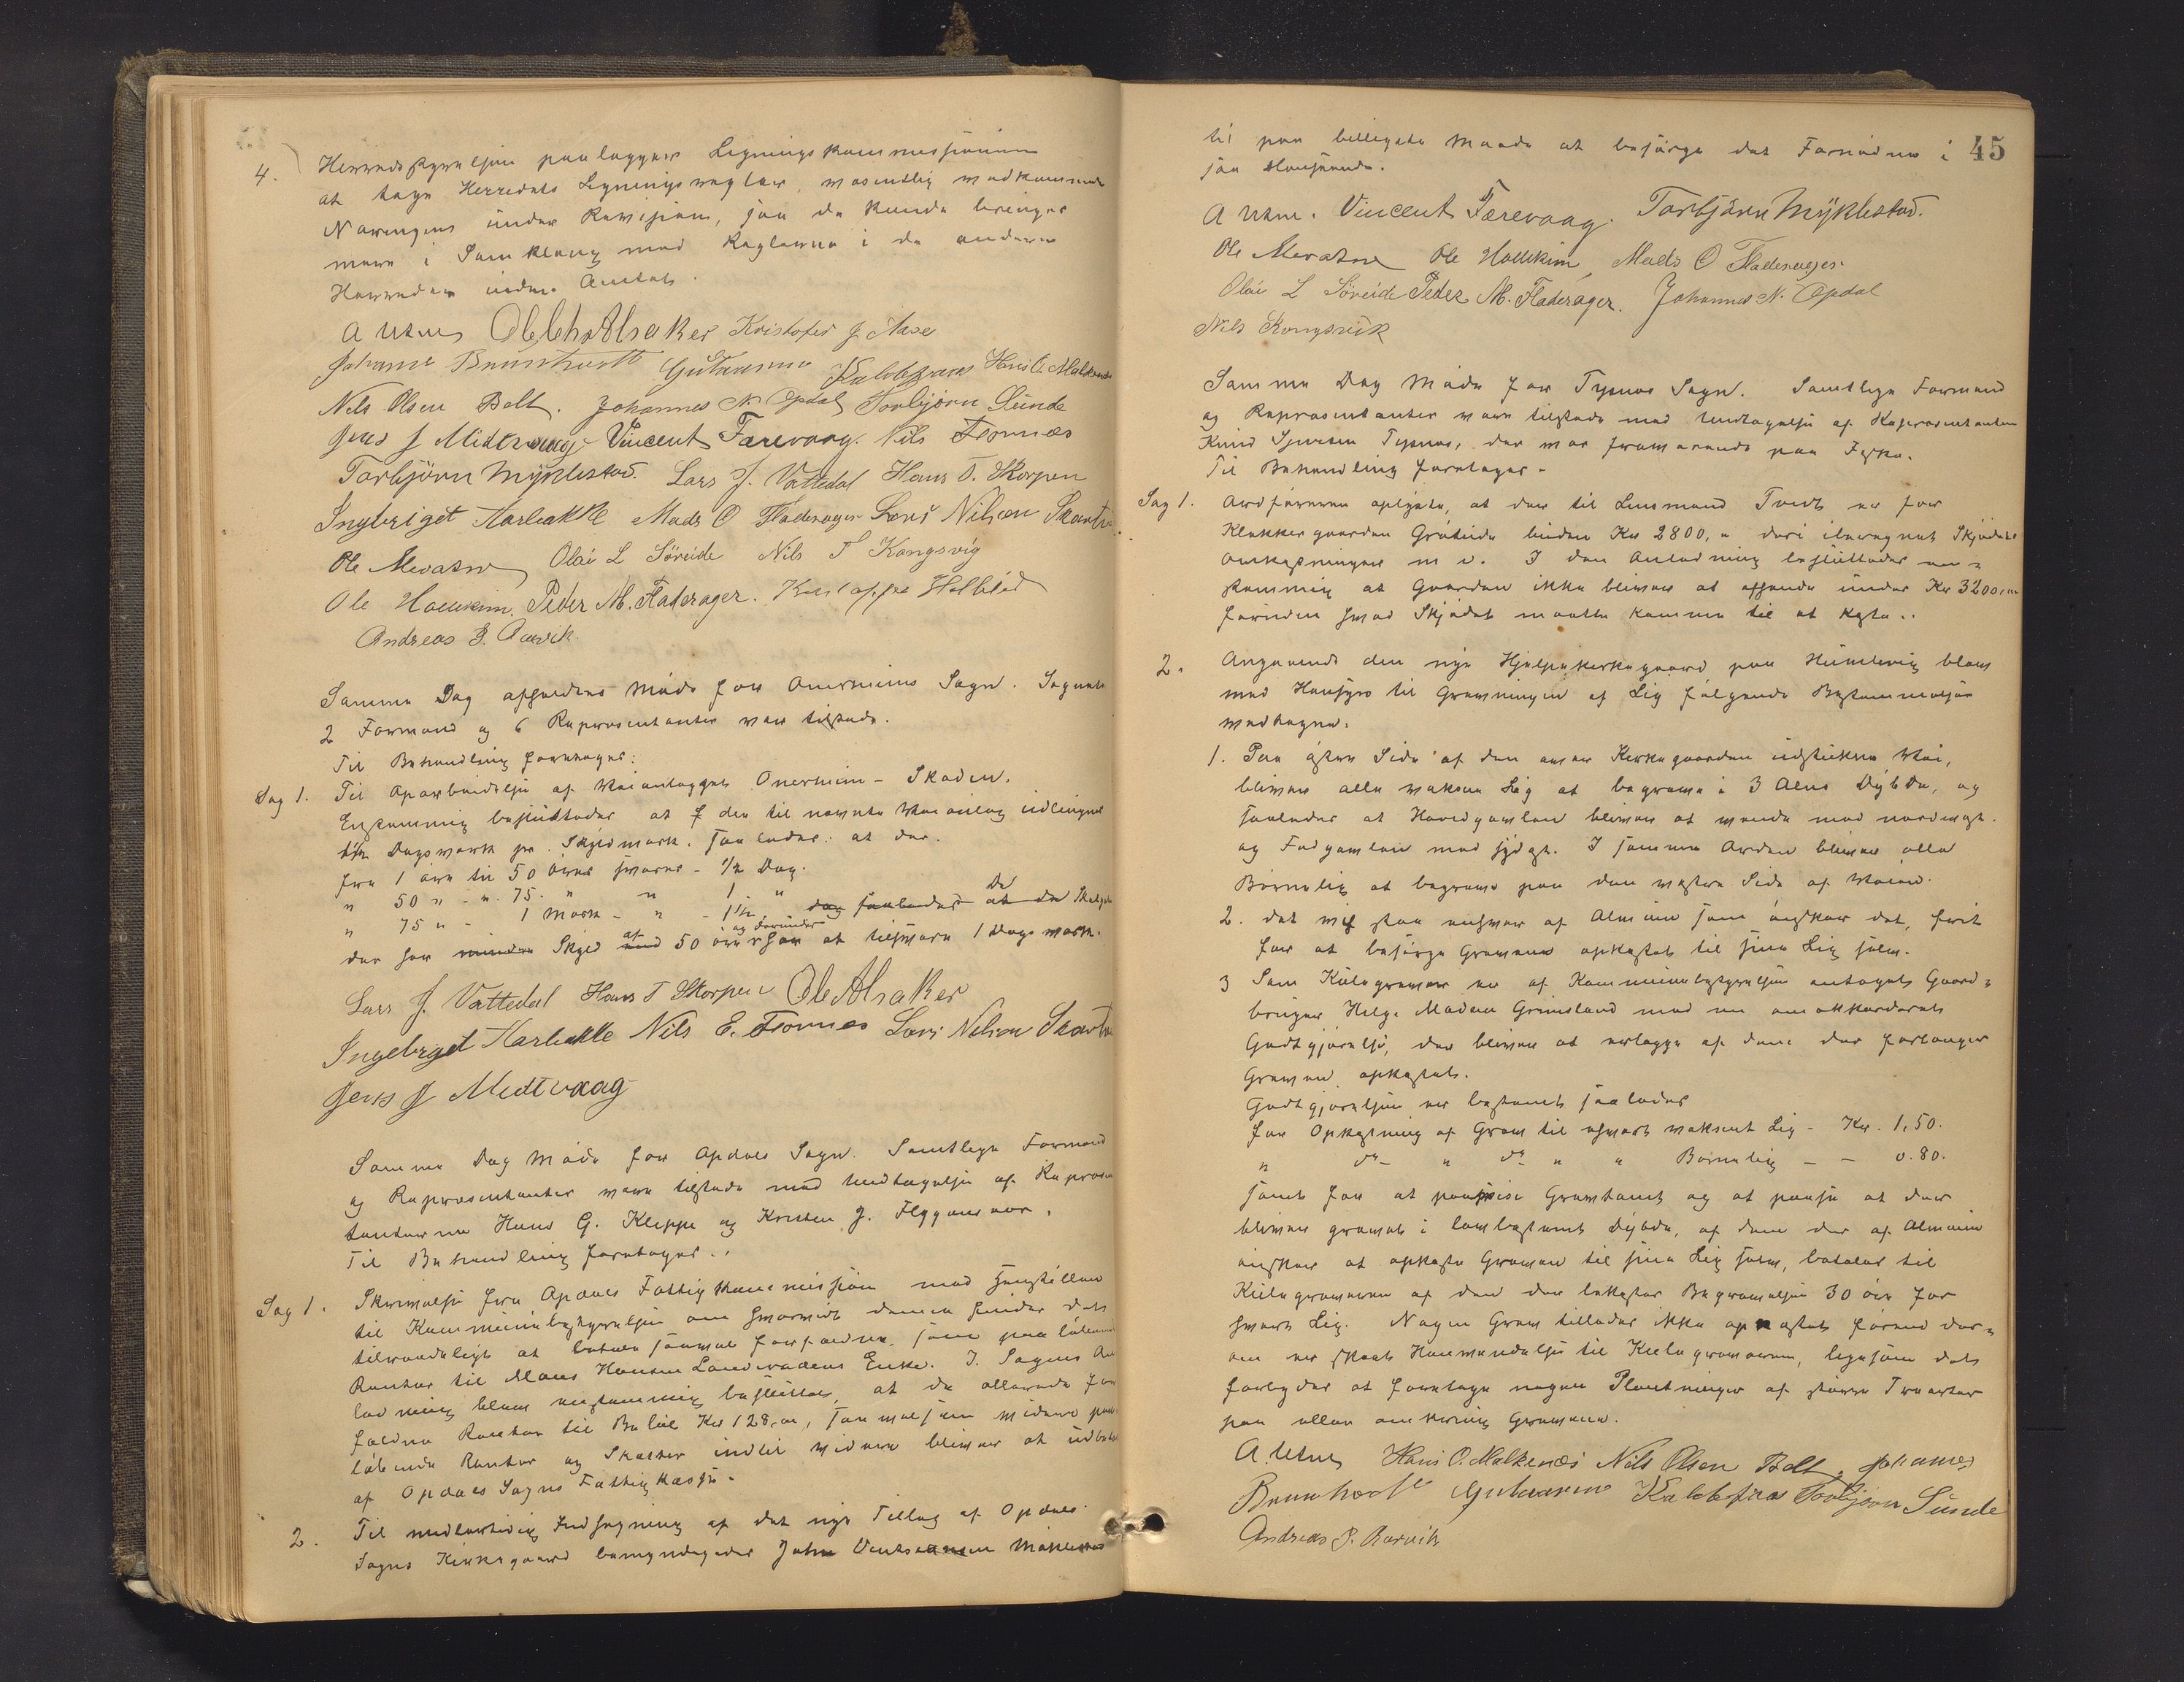 4. Herredsstyrelsen paalægger Ligningskommissionen
at tage Herredets Ligningsregler, væsentlig vedkommende
Næringen under Revision, saa de kunde bringes
mere i Samklang med Reglerne i de andre
Herreder inden Amtet.
A Utne Ole Chr Alsaker Kristofer J Aase
Johannes Bruntvedt Hans O. Malkenes
Nils Olsen Bolt. Johannes N. Opdal Torbjörn Sunde
Jens J Midtvaag Vincent Færevaag. Nils Fromnes
Torbjörn Mÿklestad. Lars J. Vattedal Hans T. Skorpen
Ingebriget Aarbakke Mads O Fladerager Lars Nilsen
Ole Mevatne Olai L Söreide Nils T Kongsvig
Ole Hovekim. Peder M. Fladerager.
Andreas B. Aarvik
Samme Dag afholdtes Möde for Onerheims Sogn. Sognets
2 Formænd og 6 Repræsentanter var tilstede.
Til Behandling foretoges:
Sag 1. Til Oparbeidelse af Veianlægget Onerheim - Skaden.
Enstemmig besluttedes at der til nævnte Veianlæg udlignes
Dagsværk pr. Skyldmark. saaledes: at der.
fra 1 öre til 50 öres svares - 1/2 Dag.
" 50 " - " 75. " " 1 "
" 75 " - 1 Mark - " - 1 1/2 " dog saaledes at de De
der har mindre Skyld end af 50 öre og derunder har at tilsvare 1 Dagsværk.
Lars J. Vattedal Hans T Skorpen Ole Alsaker
Ingebriget Aarbakke Nils E. Fromnes Lars Nilsen
Jens J Midtvaag
Samme Dag Möde for Opdals Sogn. Samtlige Formænd
og Repræsentanter vare tilstede med Undtagelse af Repræsen
tanterne Hans G. Kleppe og Kristen J. Flyganvær.
Til Behandling foretoges.
Sag 1. Skrivelse fra Opdals Fattigkommission med Henstillen
til Kommunebestyrelsen om hvorvidt denne finder det
tilraadeligt at betale saavel forfaldne som paalöbende
Renter til Mons Hansen Landevadens Enke. I Sagens An
ledning blev enstemmig besluttet, at de allerede for
faldne Renter til Belöb Kr 128,00, saavelsom videre paa
löbende Renter og Skatter indtil videre bliver at udbetale
af Opdals Sogns Fattigkasse.
2. Til nedlertidig Indhegning af det nye Tillæg af Opdals
Sogns Kirkegaard bemyndigedes John
45
til paa billigste Maade at besörge det Fornödne i
saa Henseende.
A Utne. Vincent Færevaag. Torbjörn Mÿklestad.
Ole Mevatne Ole Hovekim Mads O Fladerager
Olai L Söreide Peder M. Fladerager. Johannes N. Opdal
Nils Kongsvik
Samme Dag Möde for Tysnes Sogn. Samtlige Formænd
og Repræsentanter vare tilstede med Undtagelse af Repræsentanten
Knud Sjursen Tysnes, der var fraværende paa Fiske.
Til Behandling foretoges.
Sag 1. Ordföreren oplyste, at der til Lensmand Tvedt er for
Klokkergaarden Gröteide buden Kr 2800,00 deri iberegnet Skjödets
Omkostninger m v. I den Anledning besluttedes en=
stemmig at Gaarden ikke bliver at afhænde under Kr 3200,00
foruden hvad Skjödet maatte komme til at koste.
2. Angaaende den nye Hjælpekirkegaard paa Humlevig blev
med Hensyn til Gravningen af Lig fölgende Bestemmelser
vedtagne.
1. Paa östre Side af den over Kirkegaarden udstukne Vei,
bliver alle voksne Lig at begrave i 3 Alens Dÿbde, og
saaledes at Hovedgavlen bliver at vende mod nordvest.
og Fodgavlen mod sydöst. I samme Orden bliver alle
Börnelig at begrave paa den vestre Side af Veien.
2. det vil staa enhver af Almuen som önsker det, frit
for at besörge Graven opkastet til sine Lig selv.
3 Som Kulegraver er af Kommunebestyrelsen antaget Gaard=
bruger Helge Madsen Grimsland med en omakkorderet
Godtgjörelse, der bliver at erlægge af dem der forlanger
Graven opkastet.
Godtgjörelsen er bestemt saaledes
for Opkastning af Grav til ethvert voksent Lig - Kr. 1,50.
" do - " do " " Börnelig - - 0.80.
samt for at paavise Gravtomt og at paase at der
bliver gravet i lovbestemt dÿbde, af dem der af Almuen
önsker at opkaste Graven til sine Lig selv, betales til
Kulegraveren af den der bekoster Begravelsen 30 öre for
hvert Lig. Nogen Grav tillades ikke opkastet förend der=
om er skeet Henvendelse til Kulegraveren, ligesom det
forbydes at foretage nogen Plantninger af större Trearter
paa eller omkring Gravene.
A. Utne Hans O. Malkenes Nils Olsen Bolt. Johannes
Bruntvedt Torbjörn Sunde
Andreas B. Aarvik